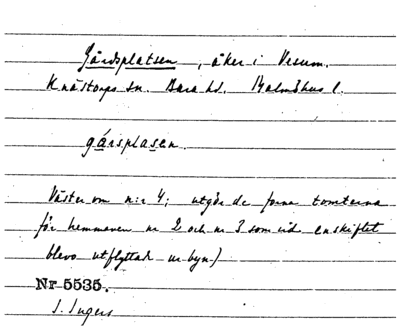 Gårdsplatsen, åker i Vesum.
Knästorps sn. Bara hd. Malmöhus l.
gårsplasen.
Väster om n:r 4; utgör de forna tomterna
för hemmanen nr 2 och nr 3 som vid enskiftet
blevo utflyttade ur byn)
Nr 5535.
I. Ingers